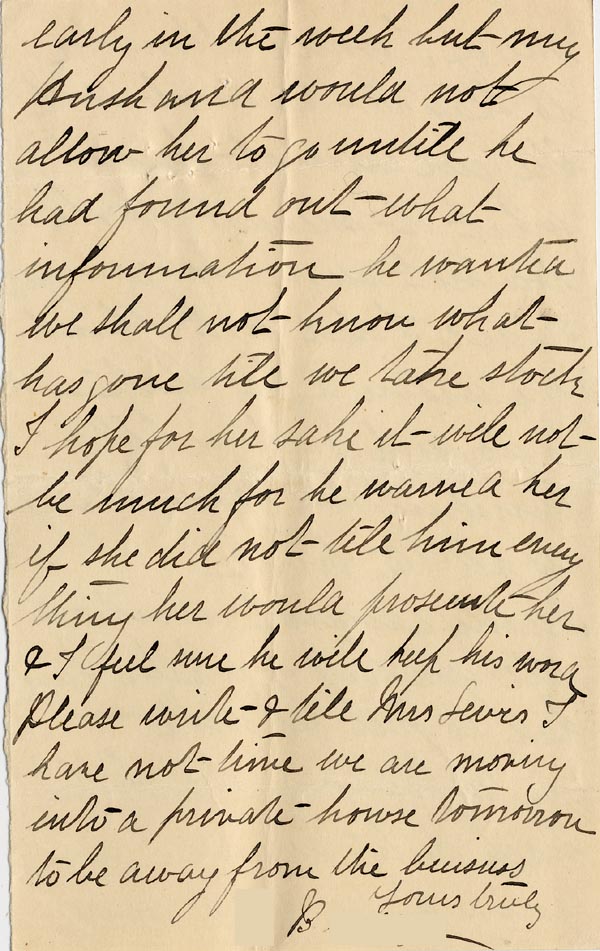 early in the week but my
Husband would not
allow her to go untile he
had found out what
information he wanted
we shall not know what
has gone tile we take stock
I hope for her sake it wile not
be much for he warned her
if she did not tile him every
thing her would prosecute her
& I feel sure he wile keep his word
Please write & tile Mrs Lewis I
have not time we are moving
into a private house tomorrow
to be away from the buisness
Yours truly
B